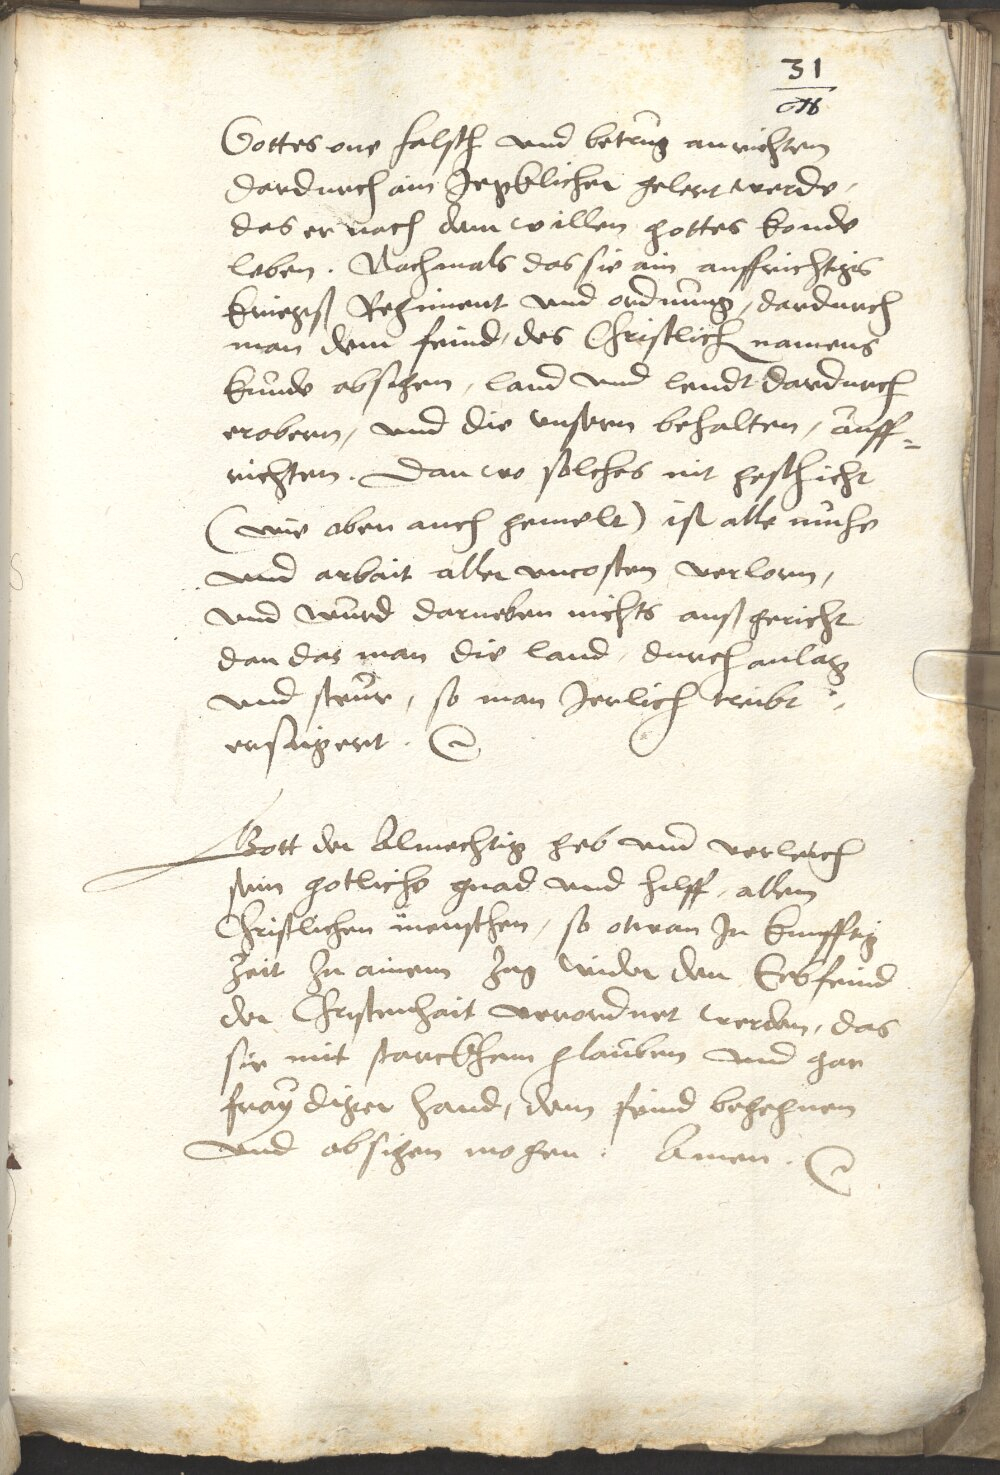 31
Gottes one falsch und betrug anrichten
dardurch ain Jegklicher gelert werde,
das er nach dem willen gottes konde
leben. Nachmals das sie ain auffrichtigs
kriegß Regiment und ordnung, dardurch
man dem feind, des Christlich namens
kunde absigen, land und leudt dardurch
erobern, und die unsern behalten, auff=
richten. Dan wo solches nit geschicht
(wie oben auch gemelt) ist alle muhe
und arbait aller uncosten verlorn,
und wurd darneben nichts außgericht
dan das man die land, durch anlag
und steur, so man Jerlich treibt,
ersaigert.
Gott der Almechtig geb und verleich
sein gotliche gnad und hilff, allen
Christlichen menschen, so etwan In kunfftig
Zeit Zu ainem Zug wider den Erbfeind
der Christenhait verordnet werden, das
sie mit starckhem glauben und gar
fraydiger hand, dem feind begegnen
und absigen mogen. Amen.